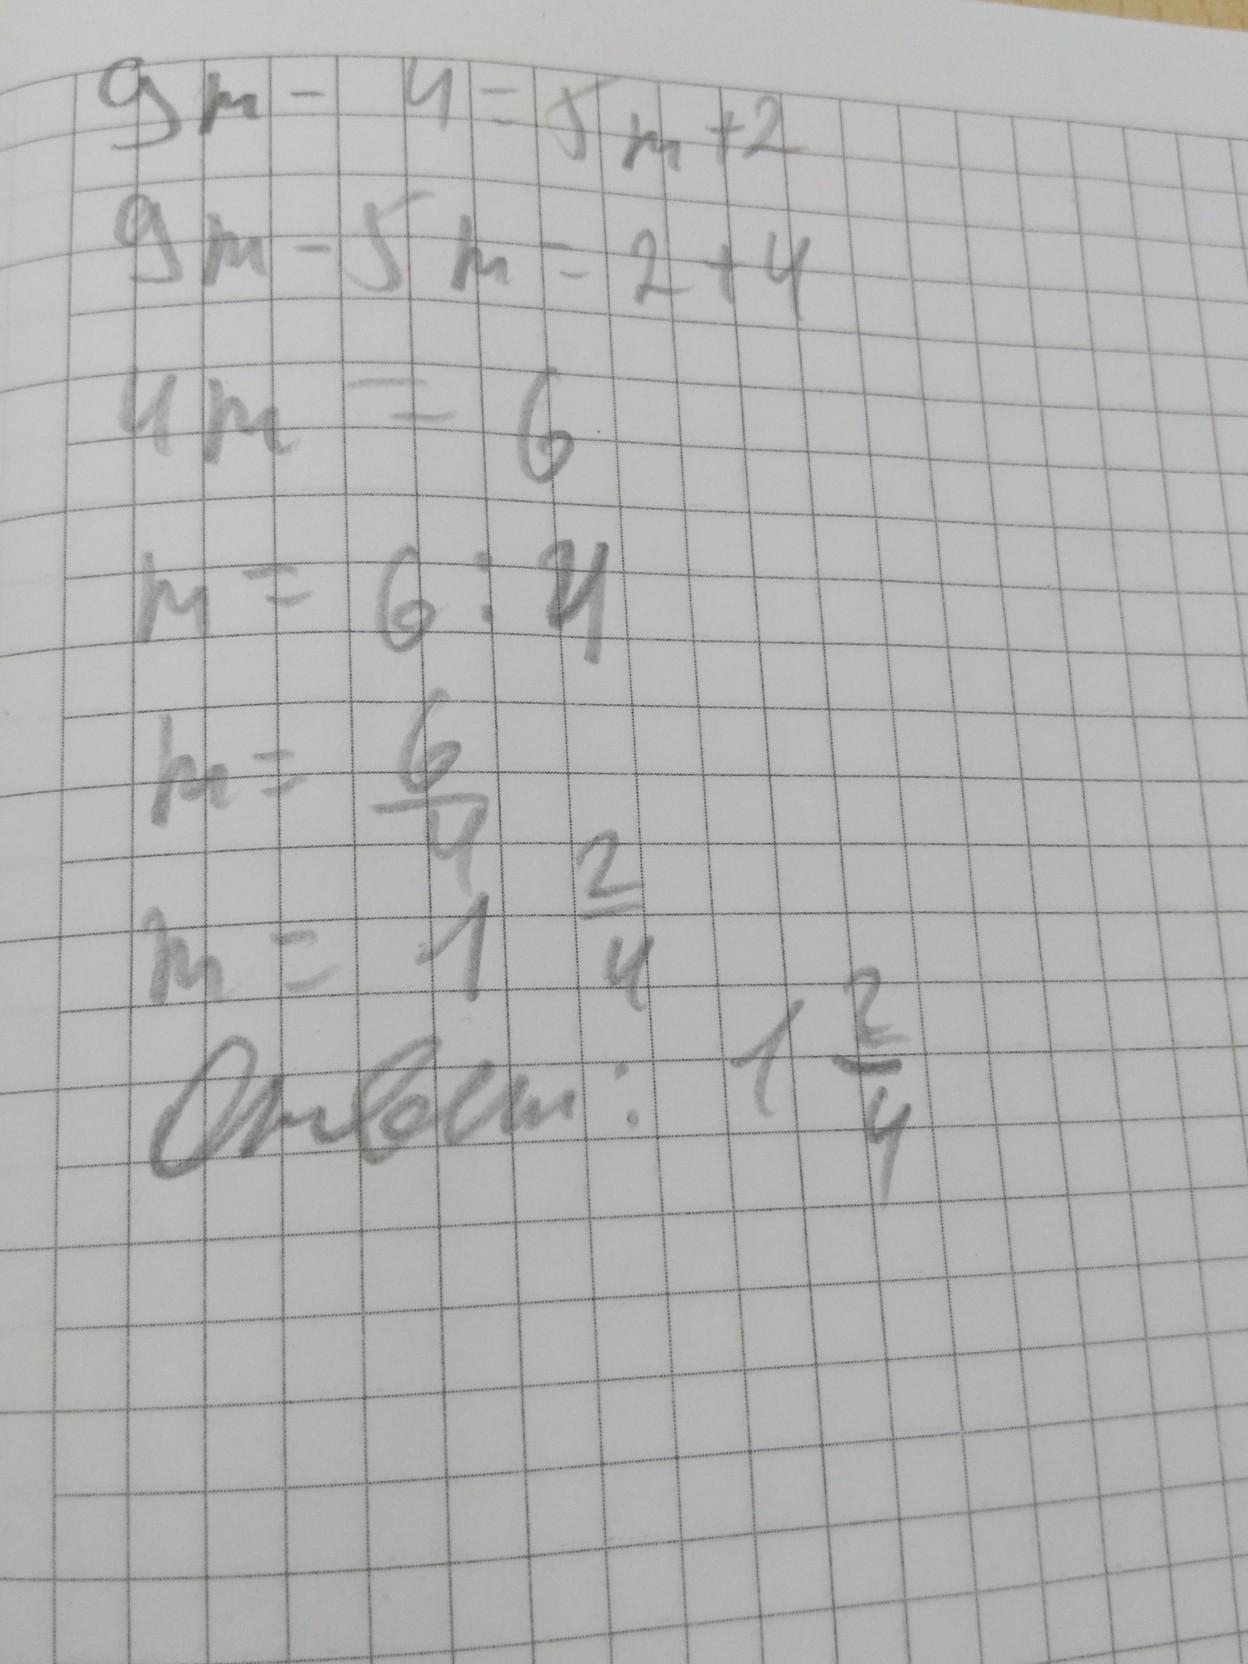 9m - 4 = 5m + 2
9m - 5m = 2 + 4
4m = 6
m = 6 : 4
m = 6/4
m = 1 2/4
Ответ: 1 2/4